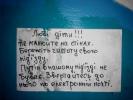 Любі діти!!!
Не малюйте на стінах.
Бережіть чистоту свого
під'їзду.
Путін в нашому під'їзді не
буває. Зверніться до
нього по електронній пошті.